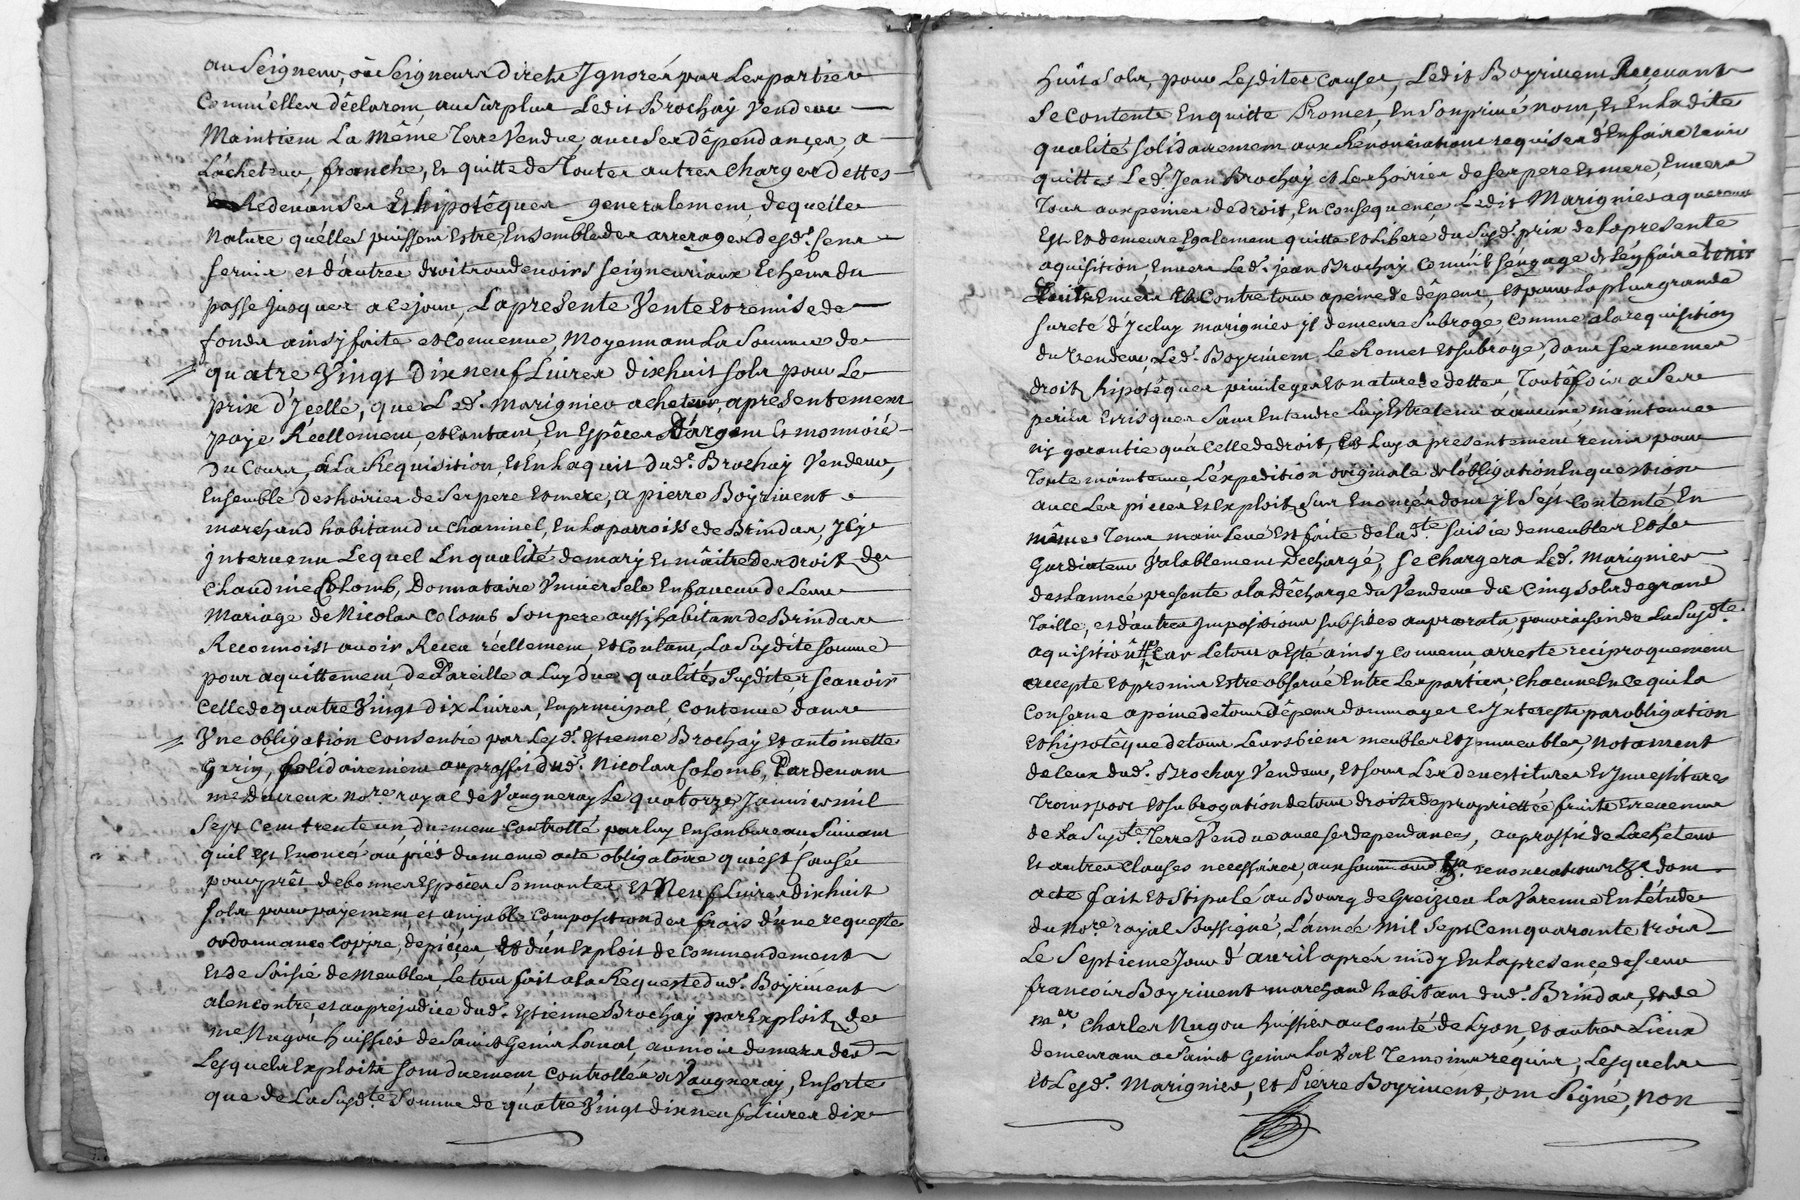 au Seigneur, ou Seigneurs directs Ignorés par Les parties
Comm'elles déclarent, au Surplus Ledit Brochay Vendeur
Maintient La même Terre Vendue, avec Ses dépendances, a
L'acheteur, franche, et quitte de Toutes autres charges dettes
Redevanses Et hipotêques generalement, de quelle
Nature qu'elles puissent Estre, Ensemble des arrerages desd.s Cens
servis et d'autres droits ou devoirs seigneuriaux Echeus du
passé Jusques a ce jour, La presente Vente et remise de
fonds ainsy faite et Convenue, Moyennant La Somme de
quatre Vingt Dix neuf Livres dixhuit sols pour Le
prix d'Jcelle, que Led.t Marignier acheteur, a présentement
payé Réellement, et Contant, En Espêces D'argent Et monnoié
du Cours, à La Requisition, Et En Laquit dud.t Brochay Vendeur,
Ensemble des hoiries de Ses pere et mere, a pierre Boyrivent
marchand habitant du chaninel, En La parroisse de Brindas, Jcy
intervenu Lequel En qualité de mary et maître des droits de
Claudine Colomb, Donnataire Vniversele En faveur de Leur
Mariage de Nicolas Colomb Son pere aussy habitant de Brindas
Reconnoist avoir Receu réellement, et Contant, La Susdite somme
pour aquittement, de Pareille a Luy due qualités Susdites, scavoir
Celle de quatre Vingt Dix Livres, En principal, Contenue dans
Vne obligation Consentie par Lesd.s Estienne Brochay et antoinette
Garin, solidairement au proffit dud.t Nicolas Colomb, Pardevant
m.e dutreux No.re royal de Vaugneray Le quatorze Janvier mil
Sept Cent trente un, duement Controllé par luy En son bureau Suivant
quil Est Enoncé au pied du meme acte obligatoire qui est Causé
pour prêt de bonnes Espêces Sonnantes, Et Neuf Livres dixhuit
sols pour payement et amiable Composition des frais d'une requeste
ordonnance Copie, de pièces, Et d'un Exploit de Commendement
Et de Saisie de Meubles, Le tout fait a La Requeste dud.t Boyrivent
alencontre, et au prejudice dud.t Estienne Brochay par Exploits de
m.e Nugou huissier de Saint Genis Laval, au mois de mars der.
Lesquels Exploits sont duement, Controllés a Vaugneray, En sorte
que de La Susd.te Somme de quatre Vingt dix neuf Livres dix
huit Sols, pour Lesdites Causes, Ledit Boyrivent Recevant
Se Contente En quitte Promet, En Son privé nom, Et En Ladite
qualité solidairement aux Renonciations requises d'En faire tenir
quittes Led.t Jean Brochay et Les hoiries de Ses pere Et mere, Envers
Tous aux peines de droit, En Consequence Ledit Marignier aquereur
Est Et demeure Egalement quitte et Libere du Susd.t prix de La presente
aquisition, Envers Led.t jean Brochay Comm'il s'engage de L'En faire tenir
Envers Et Contre tous a peine de dêpens, et pour La plus grande
sureté d'Jceluy marignier, il demeure Subrogé, Comme a La requisition
du Vendeur, Led.t Boyrivent Le Remet Et subroge, dans Ses memes
droits hipotêques privileges et nature de dettes, Toutefois a Ses
perils Et risques Sans Entendre Luy Estre tenu à aucune maintenue
ny garantie qu'a Celle de droit, Et Luy a presentement remis pour
Toute maintenue, L'expedition originale de L'obligation En question
avec Les pieces Et Exploits Sus Enoncés dont il S'est Contenté En
même Tems mainLevé Est faite de La d.te saisie de meubles Et Le
Gardiateur Valablement Déchargé, Se Chargera Led.t Marignier
des Lannée presente a La Décharge du Vendeur de Cinq sols de grand
Taille, et d'autres Impositions subsides au prorata, pour raison de La Susd.te
aquisition Car Le tout a Esté ainsy Convenu, arresté reciproquement
accepté et promis Estre observé Entre Les parties, Chacune En Ce qui La
Conserne a peine de tous Dépens dommages Et Jnterests par obligation
Et hipotêque de tous Leurs biens meubles Et Jmmeubles, notament
de Ceux dud.t Brochay Vendeur, Et sous Les devestitures Et Jnvestitures
Transport Et subrogation de tous droits de proprietté fruits Et revenus
de La Susd.te Terre Vendue avec Ses dependances, au proffit de L'acheteur
Et autres Clauses necessaires, aux renonciations &.a dont
acte fait Et Stipulé au Bourg de Greizieu la Varenne En L'étude
du No.re royal Soussigné, L'année mil Sept Cent quarante trois
Le Septieme Jour d'avril aprés midy En La presence de sieur
francois Boyrivent marchand habitant dud.t Brindas, et de
m.er Charles Nugou huissier au Comté de Lyon, et autres Lieux
demeurant a Saint Genis Laval Temoins requis, Lesquels
et Lesd.s Marignier, et Pierre Boyrivent, ont Signé, non